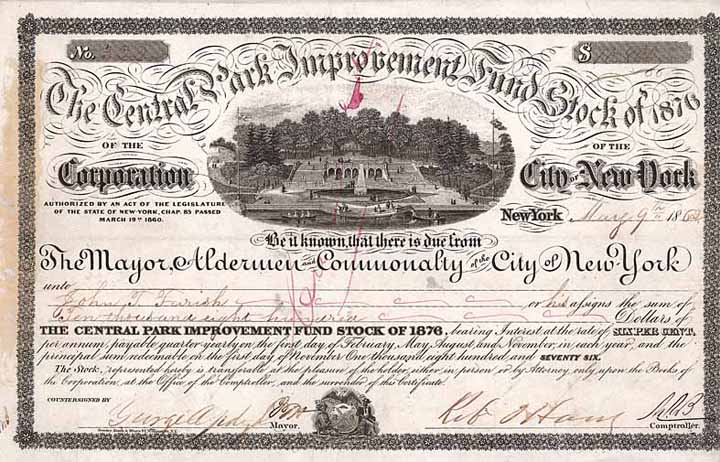 No.
$
The Central Park Improvement Fund Stock of 1876
OF THE
OF THE
Corporation
City of New-York
AUTHORIZED BY AN ACT OF THE LEGISLATURE
OF THE STATE OF NEW-YORK, CHAP. 85 PASSED
MARCH 19TH 1860.
New York May 9th 186
Be it known, that there is due from
The Mayor, Aldermen and Commonalty of the City of New York
unto
John T. Farish or his assigns the sum of
Ten thousand eight hundred Dollars of
THE CENTRAL PARK IMPROVEMENT FUND STOCK OF 1876, bearing Interest at the rate of SIX PER CENT.
per annum, payable quarter-yearly on the first day of February, May, August, and November, in each year, and the
principal sum redeemable on the first day of November One thousand eight hundred and SEVENTY SIX.
The Stock, represented hereby is transferable at the pleasure of the holder, either in person or by Attorney only upon the Books of
the Corporation, at the Office of the Comptroller, and the surrender of this Certificate.
COUNTERSIGNED BY
George Opdyke
Mayor.
Comptroller.